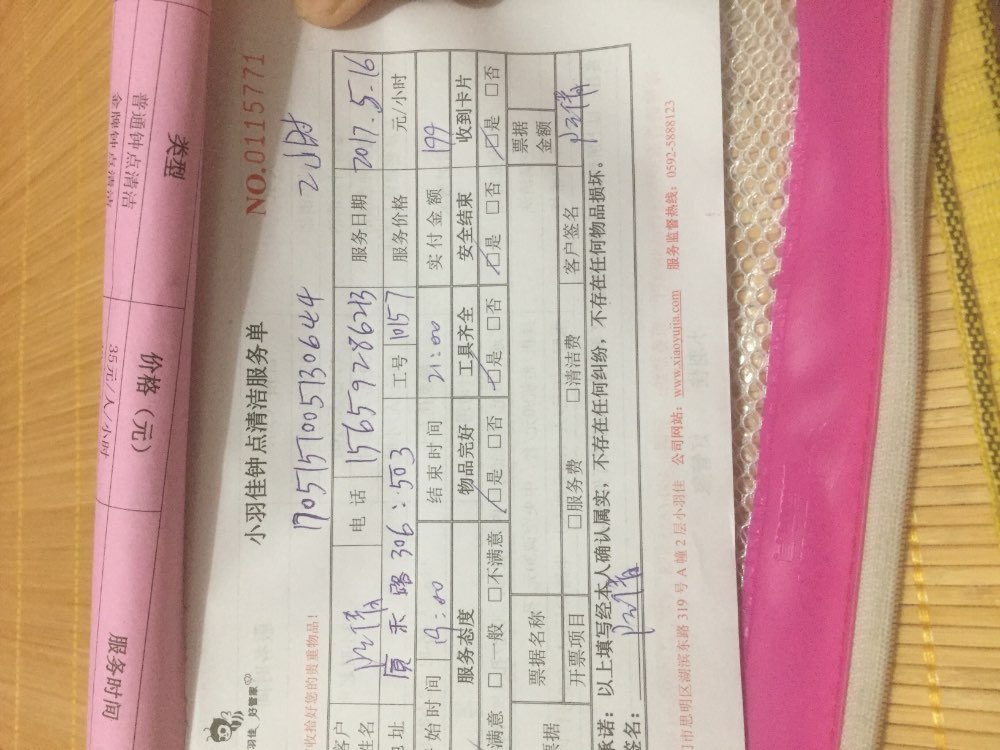 类型
价格（元）
服务时间
普通钟点清洁
35元/人/小时
小羽佳钟点清洁服务单
NO.01115771
羽佳 好管家
17051570051306​44
2小时
收拾好您的贵重物品！
客户
姓名
电话
15659286213
服务日期
2017.5.16
地址
厦禾路306:503
工号
1057
服务价格
元/小时
开始时间
19:00
结束时间
21:00
实付金额
199
服务态度
物品完好
工具齐全
安全结束
收到卡片
满意 □一般 □不满意
☑是 □否
☑是 □否
☑是 □否
☑是 □否
票据
票据名称
票据
金额
开票项目
□服务费
□清洁费
客户签名
承诺：以上填写经本人确认属实，不存在任何纠纷，不存在任何物品损坏。
签名：
门市思明区湖滨东路 319 号 A 幢 2 层小羽佳 公司网站：www.xiaoyujia.com 服务监督热线：0592-5888123